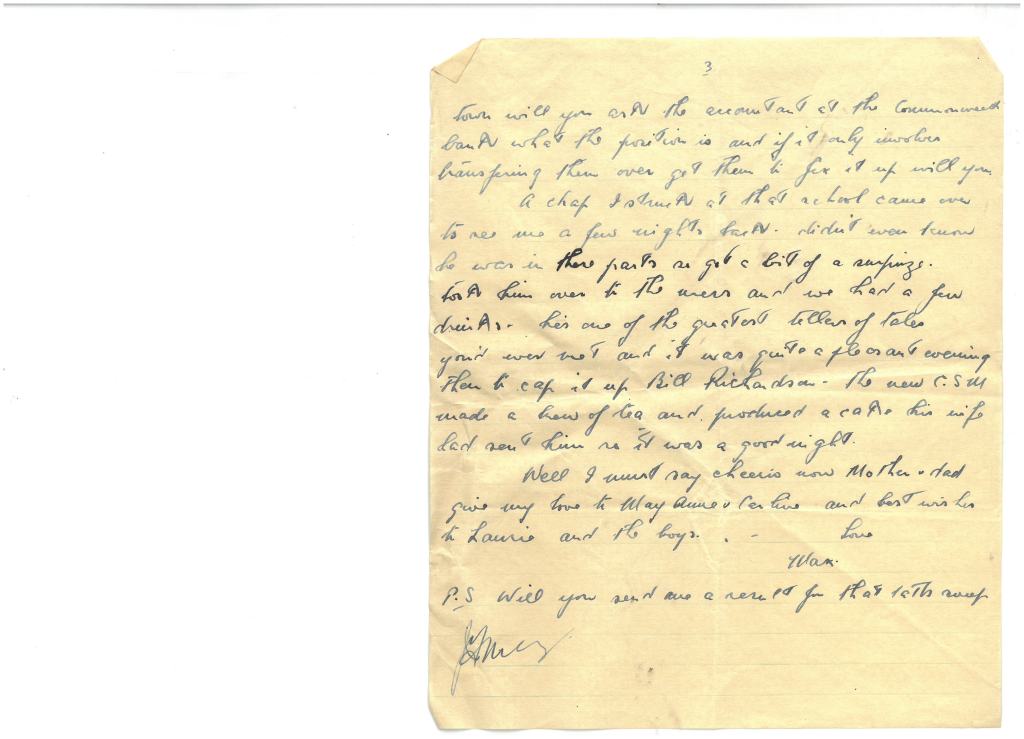 3
town will you ask the accountant at the Commonwealth
bank what the position is and if it only involves
transfering them over get them to fix it up will you.
A chap I struck at that school came over
to see me a few nights back. didn't even know
he was in these parts so got a bit of a surprize.
took him over to the mess and we had a few
drinks. he's one of the greatest tellers of tales
you'd ever met and it was quite a pleasant evening
then to cap it up Bill Richardson - the new C.S.M
made a brew of tea and produced a cake his wife
had sent him so it was a good night.
Well I must say cheerio now Mother & dad
give my love to May Anne & and best wishes
to Laurie and the boys. . - Love
Max.
P.S Will you send me a result for that tatts sweep